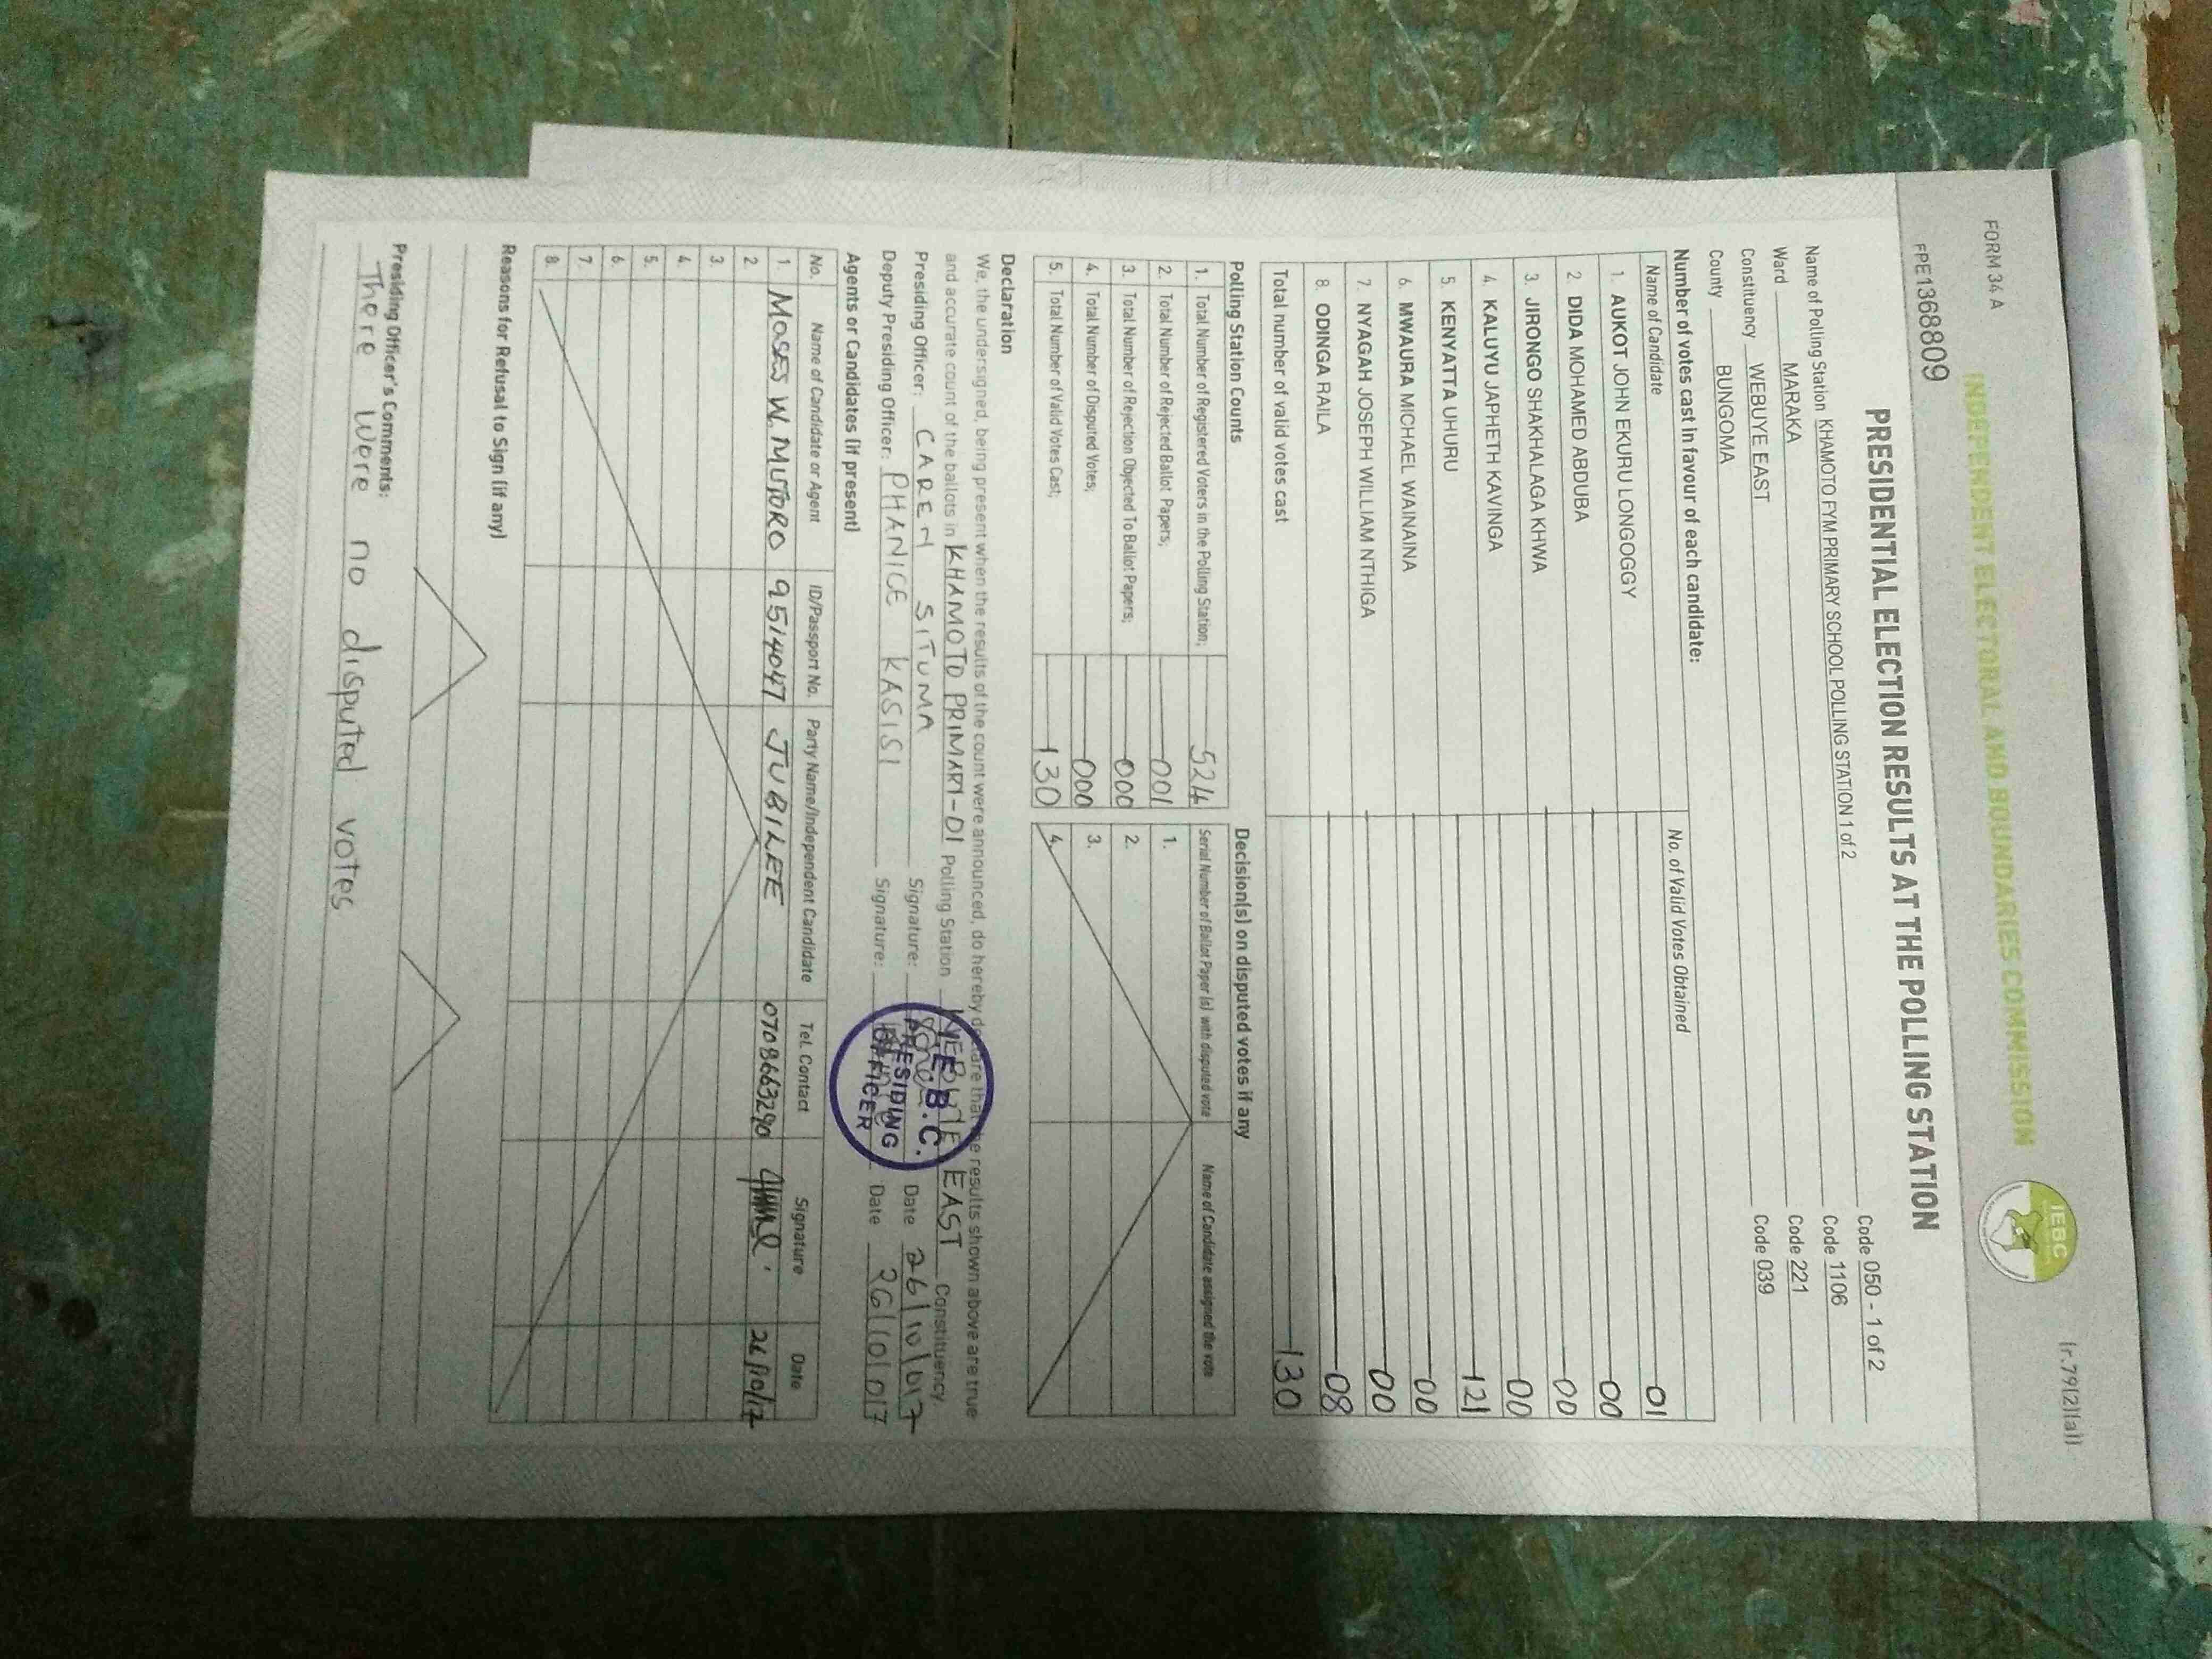 FORM 34 A
(r.79(2)(a))
INDEPENDENT ELECTORAL AND BOUNDARIES COMMISSION
IEBC
FPE1368809
PRESIDENTIAL ELECTION RESULTS AT THE POLLING STATION
Name of Polling Station KHAMOTO FYM PRIMARY SCHOOL POLLING STATION 1 of 2 Code 050 - 1 of 2
Ward MARAKA Code 1106
Constituency WEBUYE EAST Code 221
County BUNGOMA Code 039
Number of votes cast in favour of each candidate:
Name of Candidate No. of Valid Votes Obtained
1. AUKOT JOHN EKURU LONGOGGY 01
2. DIDA MOHAMED ABDUBA 00
3. JIRONGO SHAKHALAGA KHWA 00
4. KALUYU JAPHETH KAVINGA 00
5. KENYATTA UHURU 121
6. MWAURA MICHAEL WAINAINA 00
7. NYAGAH JOSEPH WILLIAM NTHIGA 00
8. ODINGA RAILA 08
Total number of valid votes cast 130
Polling Station Counts
1. Total Number of Registered Voters in the Polling Station; 524
2. Total Number of Rejected Ballot Papers; 001
3. Total Number of Rejection Objected To Ballot Papers; 000
4. Total Number of Disputed Votes; 000
5. Total Number of Valid Votes Cast; 130
Decision(s) on disputed votes if any
Serial Number of Ballot Paper (s) with disputed vote Name of Candidate assigned the vote
1.
2.
3.
4.
Declaration
We, the undersigned, being present when the results of the count were announced, do hereby declare that the results shown above are true
and accurate count of the ballots in KHAMOTO PRIMARY-01 Polling Station WEBUYE EAST Constituency
Presiding Officer: CAREN SITUMA Signature: Date 26/10/017
Deputy Presiding Officer: PHANICE KASISI Signature: Date 26/10/017
I.E.B.C.
PRESIDING
OFFICER
Agents or Candidates (if present)
No. Name of Candidate or Agent ID/Passport No. Party Name/Independent Candidate Tel. Contact Signature Date
1. MOSES W. MUTORO 9514047 JUBILEE 0708663290 26/10/17
2.
3.
4.
5.
6.
7.
8.
Reasons for Refusal to Sign (if any)
Presiding Officer's Comments:
There were no disputed votes